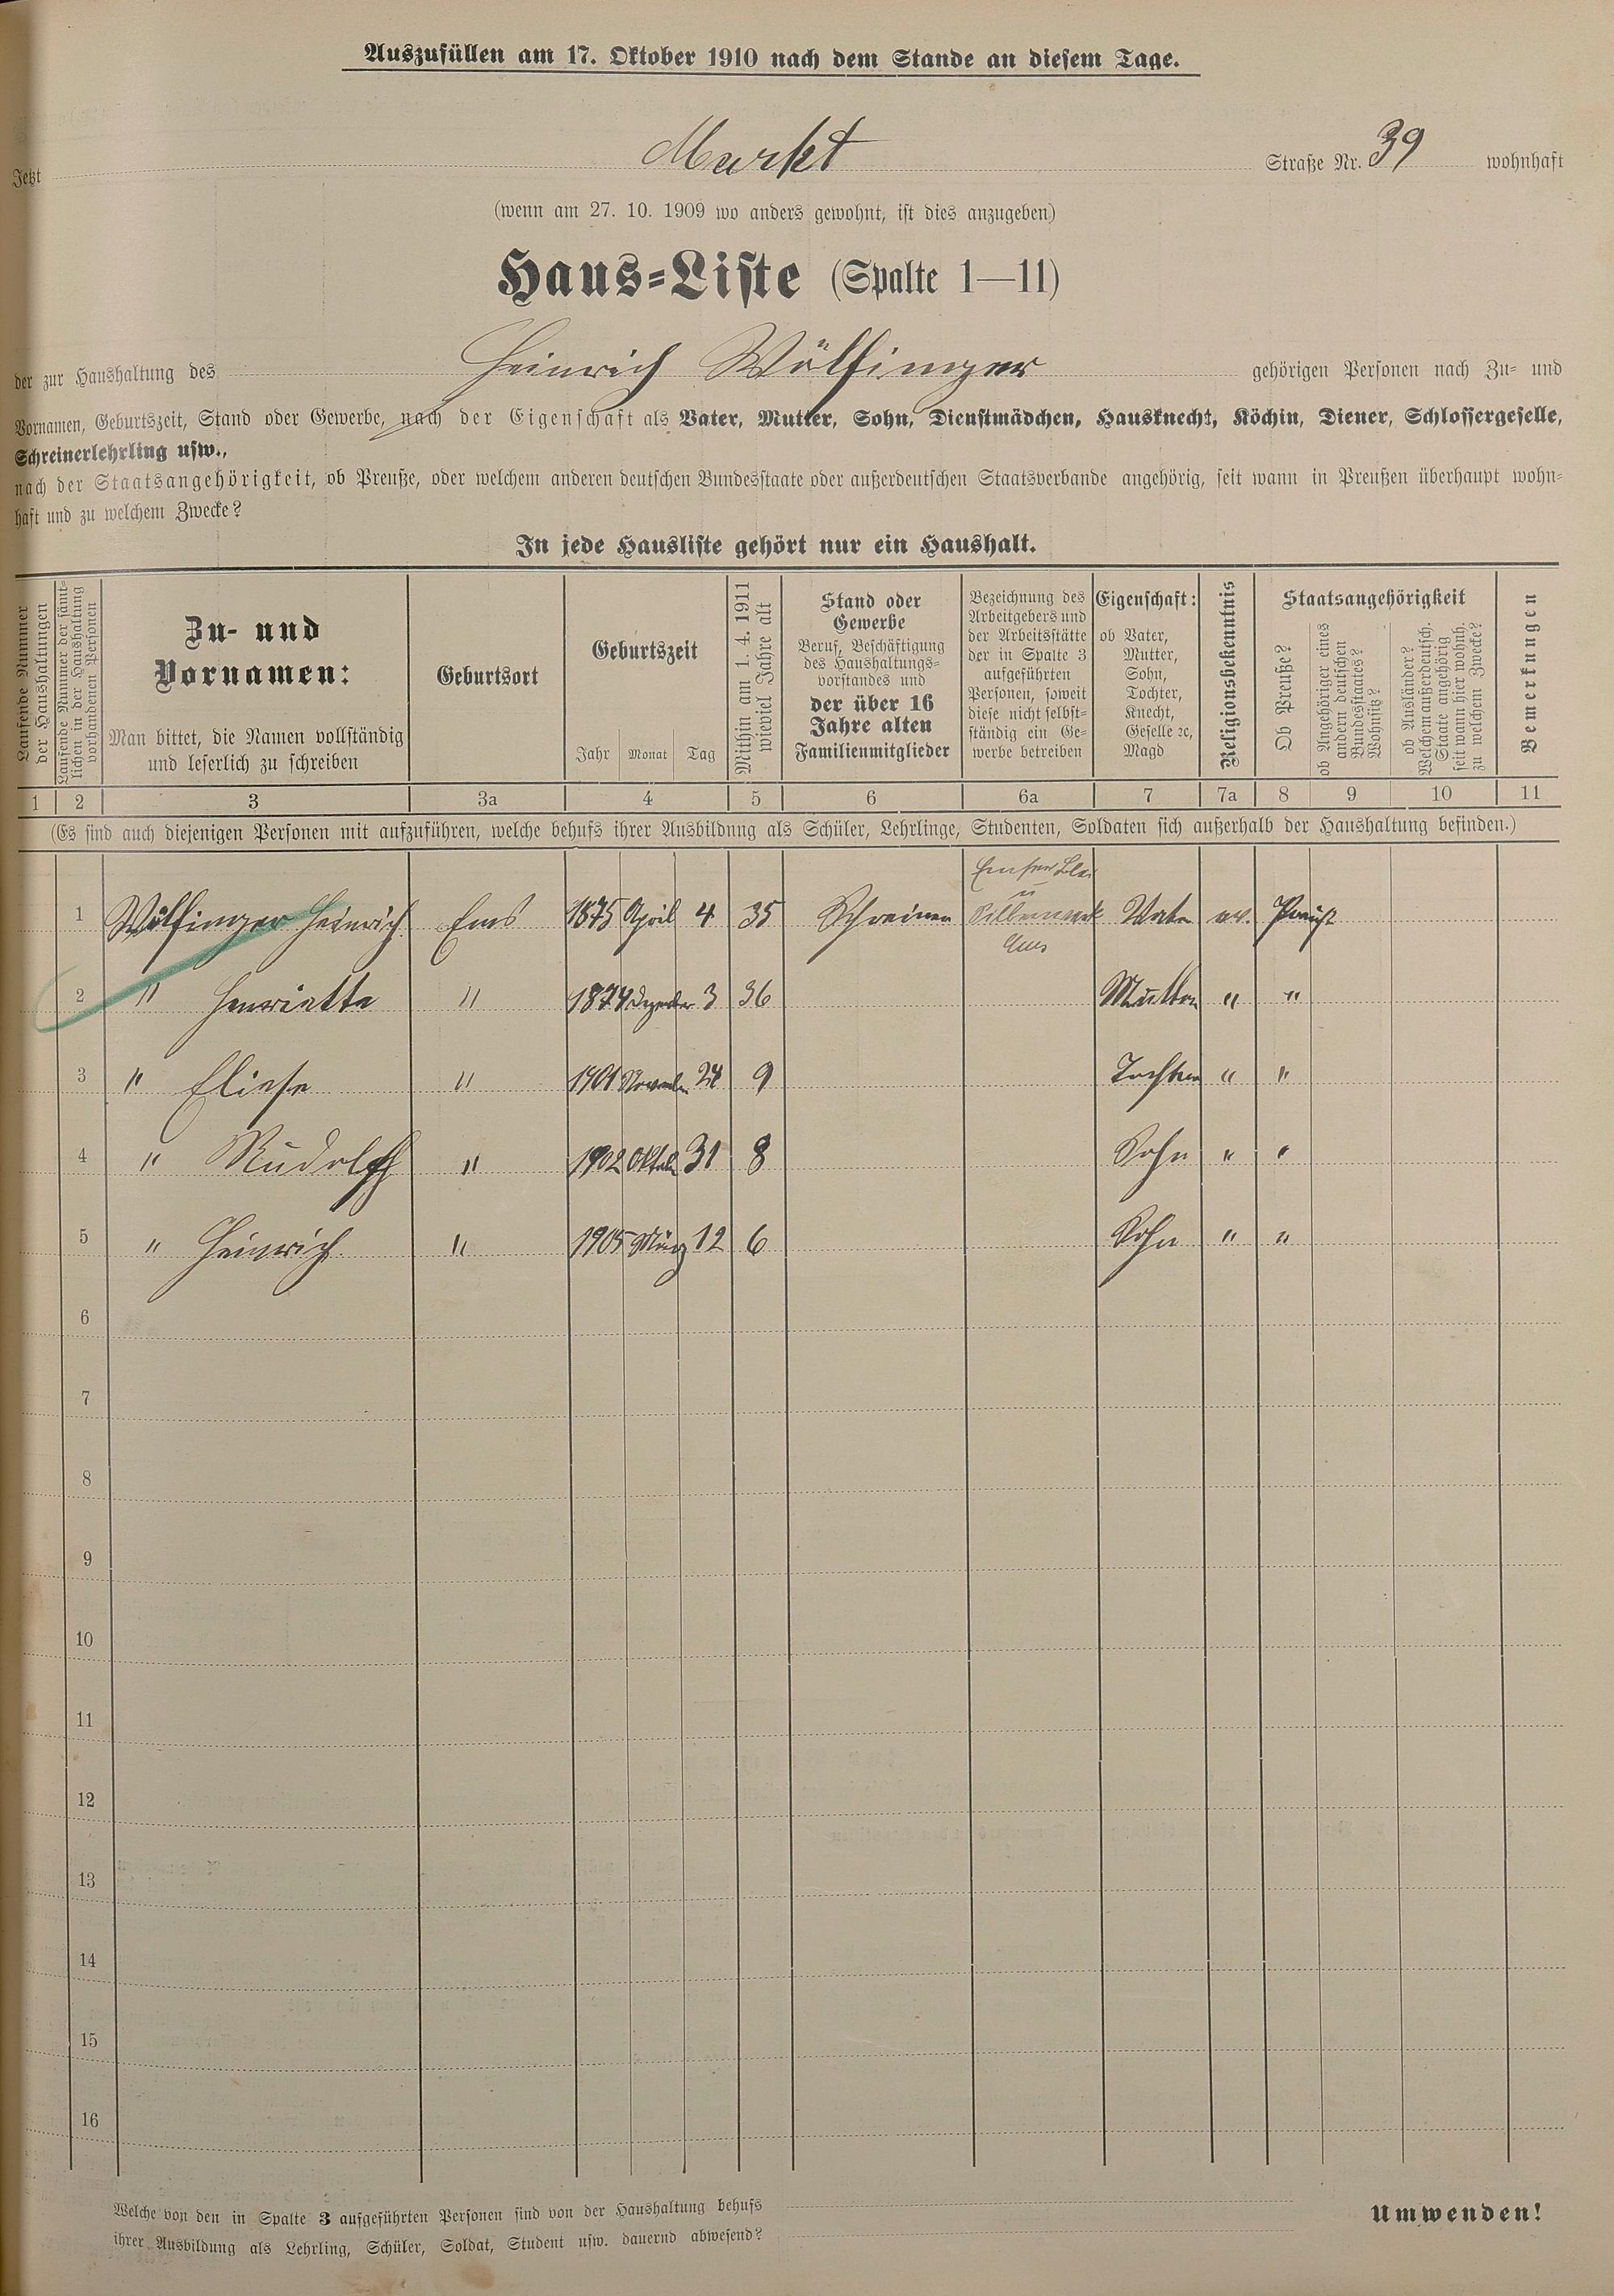 Auszufüllen am 17. Oktober 1910 nach dem Stande an diesem Tage.
Jetzt Markt Straße Nr. 39 wohnhaft
(wenn am 27. 10. 1909 wo anders gewohnt, ist dies anzugeben)
Haus-Liste (Spalte 1—11)
der zur Haushaltung des Heinrich Wölfinger gehörigen Personen nach Zu- und
Vornamen, Geburtszeit, Stand oder Gewerbe, nach der Eigenschaft als Vater, Mutter, Sohn, Dienstmädchen, Hausknecht, Köchin, Diener, Schlossergeselle,
Schreinerlehrling usw.,
nach der Staatsangehörigkeit, ob Preuße, oder welchem anderen deutschen Bundesstaate oder außerdeutschen Staatsverbande angehörig, seit wann in Preußen überhaupt wohn-
haft und zu welchem Zwecke?
In jede Hausliste gehört nur ein Haushalt.
Laufende Nummer
der Haushaltungen
Laufende Nummer der sämt-
lichen in der Haushaltung
vorhandenen Personen
Zu- und
Vornamen:
Man bittet, die Namen vollständig
und leserlich zu schreiben
Geburtsort
Geburtszeit
Jahr Monat Tag
Mithin am 1. 4. 1911
wieviel Jahre alt
Stand oder
Gewerbe
Beruf, Beschäftigung
des Haushaltungs-
vorstandes und
der über 16
Jahre alten
Familienmitglieder
Bezeichnung des
Arbeitgebers und
der Arbeitsstätte
der in Spalte 3
aufgeführten
Personen, soweit
diese nicht selbst-
ständig ein Ge-
werbe betreiben
Eigenschaft:
ob Vater,
Mutter,
Sohn,
Tochter,
Knecht,
Geselle ec,
Magd
Religionsbekenntnis
Staatsangehörigkeit
Ob Preuße?
ob Angehöriger eines
andern deutschen
Bundesstaates?
Wohnsitz?
ob Ausländer?
Welchem außerdeutsch.
Staate angehörig
seit wann hier wohnh.
zu welchem Zwecke?
Bemerkungen
1 2 3 3a 4 5 6 6a 7 7a 8 9 10 11
(Es sind auch diejenigen Personen mit aufzuführen, welche behufs ihrer Ausbildung als Schüler, Lehrlinge, Studenten, Soldaten sich außerhalb der Haushaltung befinden.)
Emser Blei
u
Silberwerk
Ems
1 Wölfinger Heinrich Ems 1875 April 4 35 Schreiner Vater ev. Preuße
2 " Henriette " 1874 Dezember 3 36 Mutter " "
3 " Eliese " 1901 November 24 9 Tochter " "
4 " Rudolf " 1902 Oktob 31 8 Sohn " "
5 " Heinrich " 1905 März 12 6 Sohn " "
6
7
8
9
10
11
12
13
14
15
16
Welche von den in Spalte 3 aufgeführten Personen sind von der Haushaltung behufs
ihrer Ausbildung als Lehrling, Schüler, Soldat, Student usw. dauernd abwesend?
Umwenden!